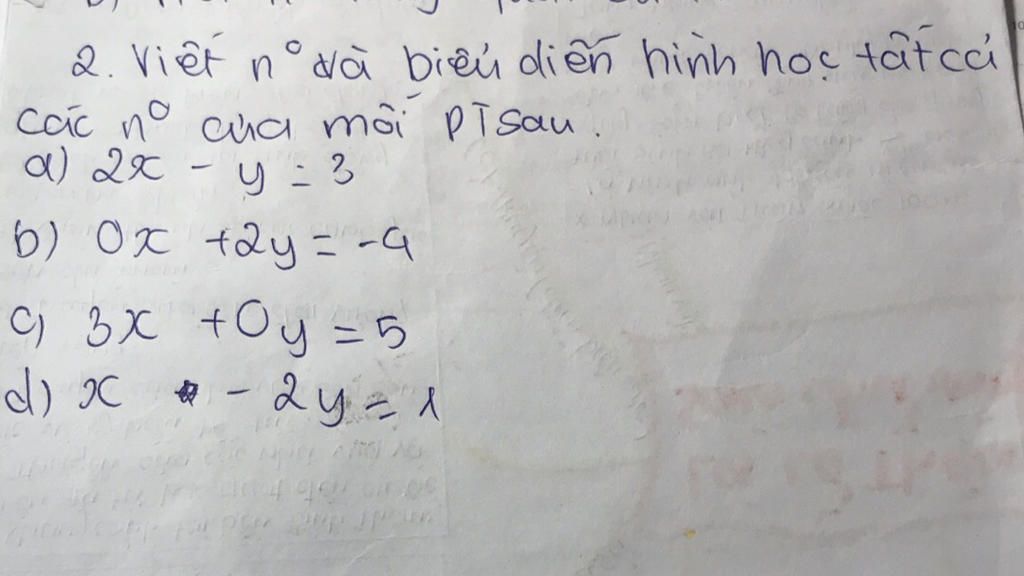 2. Viết n° và biểu diễn hình học tất cả
các n° của mỗi PT sau.
a) 2x - y = 3
b) 0x + 2y = -4
c) 3x + 0y = 5
d) x - 2y = 1